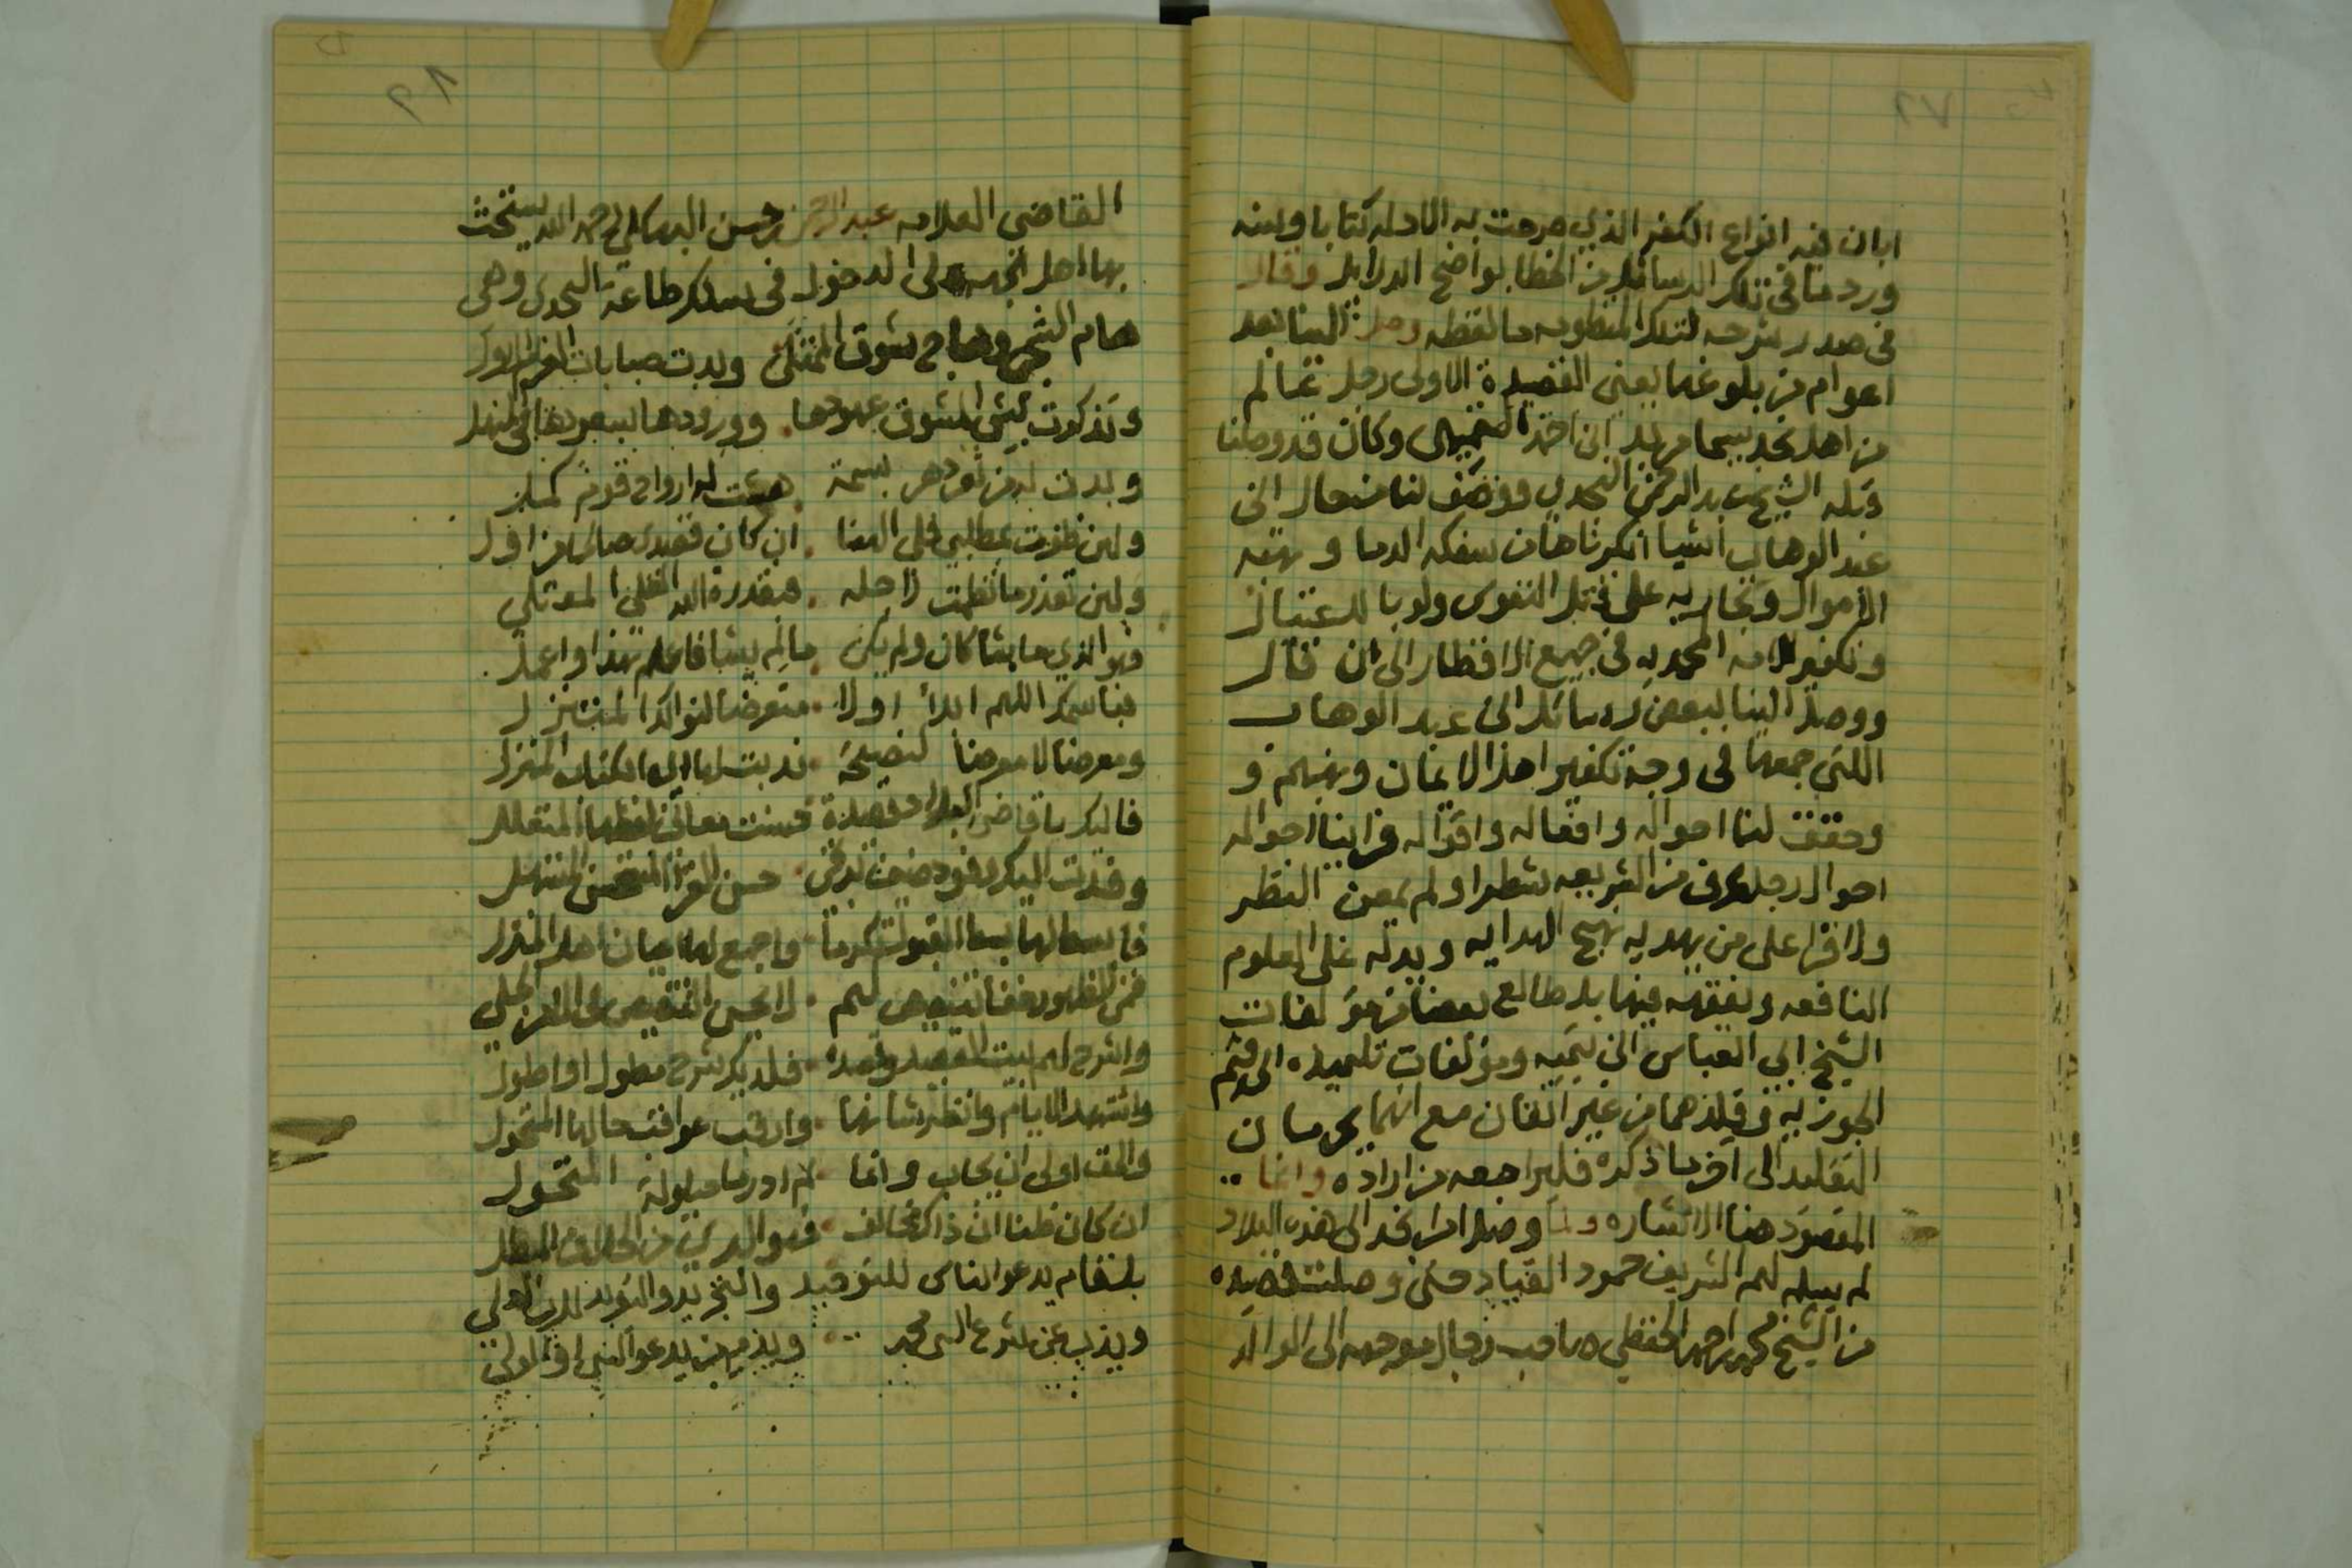 ابان فيه انواع الكفر الذي صرحت به الادله كتابا وسنه
ورد منا في تلك الرسائل من الخطا بواضح الدلايل وقال
في صدر شرحه لتلك المنظومه ما لفظه وصل الينا بعد
اعوام من بلوغها يعني القصيدة الاولى رجل عالم
من اهل نجد يسما مربد ابن احمد التميمي وكان قد وصلنا
قبله الشيخ عبد الرحمن النجدي ووصف لنا من حال ابن
عبد الوهاب اشيا انكرناها من سفكه الدما و نهبه
الاموال وتجاريه على قتل النفوس ولو بالاغتيال
وتكفير الامه المحمديه في جميع الاقطار الى ان قال
ووصل الينا ببعض رسائل ابن عبد الوهاب
اللتي جمعها في وجه تكفير اهل الايمان ونهبهم و
وحقق لنا احواله وافعاله واقواله فراينا احواله
احوال رجل عرف من الشريعه شطرا ولم يمعن النظر
ولا قرا على من يهديه نهج الهدايه ويدله على العلوم
النافعه ويفقهه فيها بل طالع بعضا من مؤلفات
الشيخ ابي العباس ابن تيميه ومؤلفات تلميذه ابن قيم
الجوزيه وقلدهما من غير اتقان مع انهما يحرمان
التقليد الى اخر ما ذكره فليراجعه من اراده وانما
المقصود هنا الاشاره ولما وصل امرا نجد الى هذه البلاد
لم يسلم لهم الشريف حمود القياد حتى وصلت قصيده
من الشيخ محمد بن احمد الحفظي صاحب رجال موجهه الى الوالد
القاضي العلامه عبد الرحمن بن حسن البهكلي رحمه الله يستحث
بها اهل الجهه الى الدخول في سلك طاعة النجدي وهي
هام الشجي وهاج شوق الممتلى وبدت صبابات الغرام
وتذكرت ليثى المشوق عهودها . وورودها بسعودها في المنهل
وبدت له من ثغر دهر بسمة . هشت له ارواح قوم كمل
ولين ظفرت بمطلبي فلي الهنا . ان كان قصدي صالحا من اول
ولين تعذر ما نظمت لاجله . فبقدرة الله العلي المعتلي
فهو الذي ما يشا كان ولم يكن . مالم يشا فاعلم بهذا واعمل
فباسمك اللهم ابدا اولا . متعرضا لنوالك المتنزل
ومعرضا لا معرضا لنصيحة . ندبت لها اي الكتاب المنزل
فاليك يا قاضي البلاد قصيدة حسنت معاني لفظها
وفدت اليك وفود ضيف يرتجي . حسن القرا
فابسط لها بسط القبول تكرما . واجمع لها اعيان اهل المنزل
واشرح لهم بيت القصيد وقصده . فلديك شرح مطول او اطول
واستشهد الايام وانظر شانها . وارقب عواقب حالها المتحول
والحق اولى ان يجاب وانما . لم ادر ما حيلولة المتحول
ان كان ظنا ان ذاك مخالف . فهو البري من الخلاف المبطل
بل قام يدعو الناس للتوحيد والتجريد والتفريد للرب العلي
ويذب عن شرع النبي محمد ... ويذم من يدعو النبي او الولي